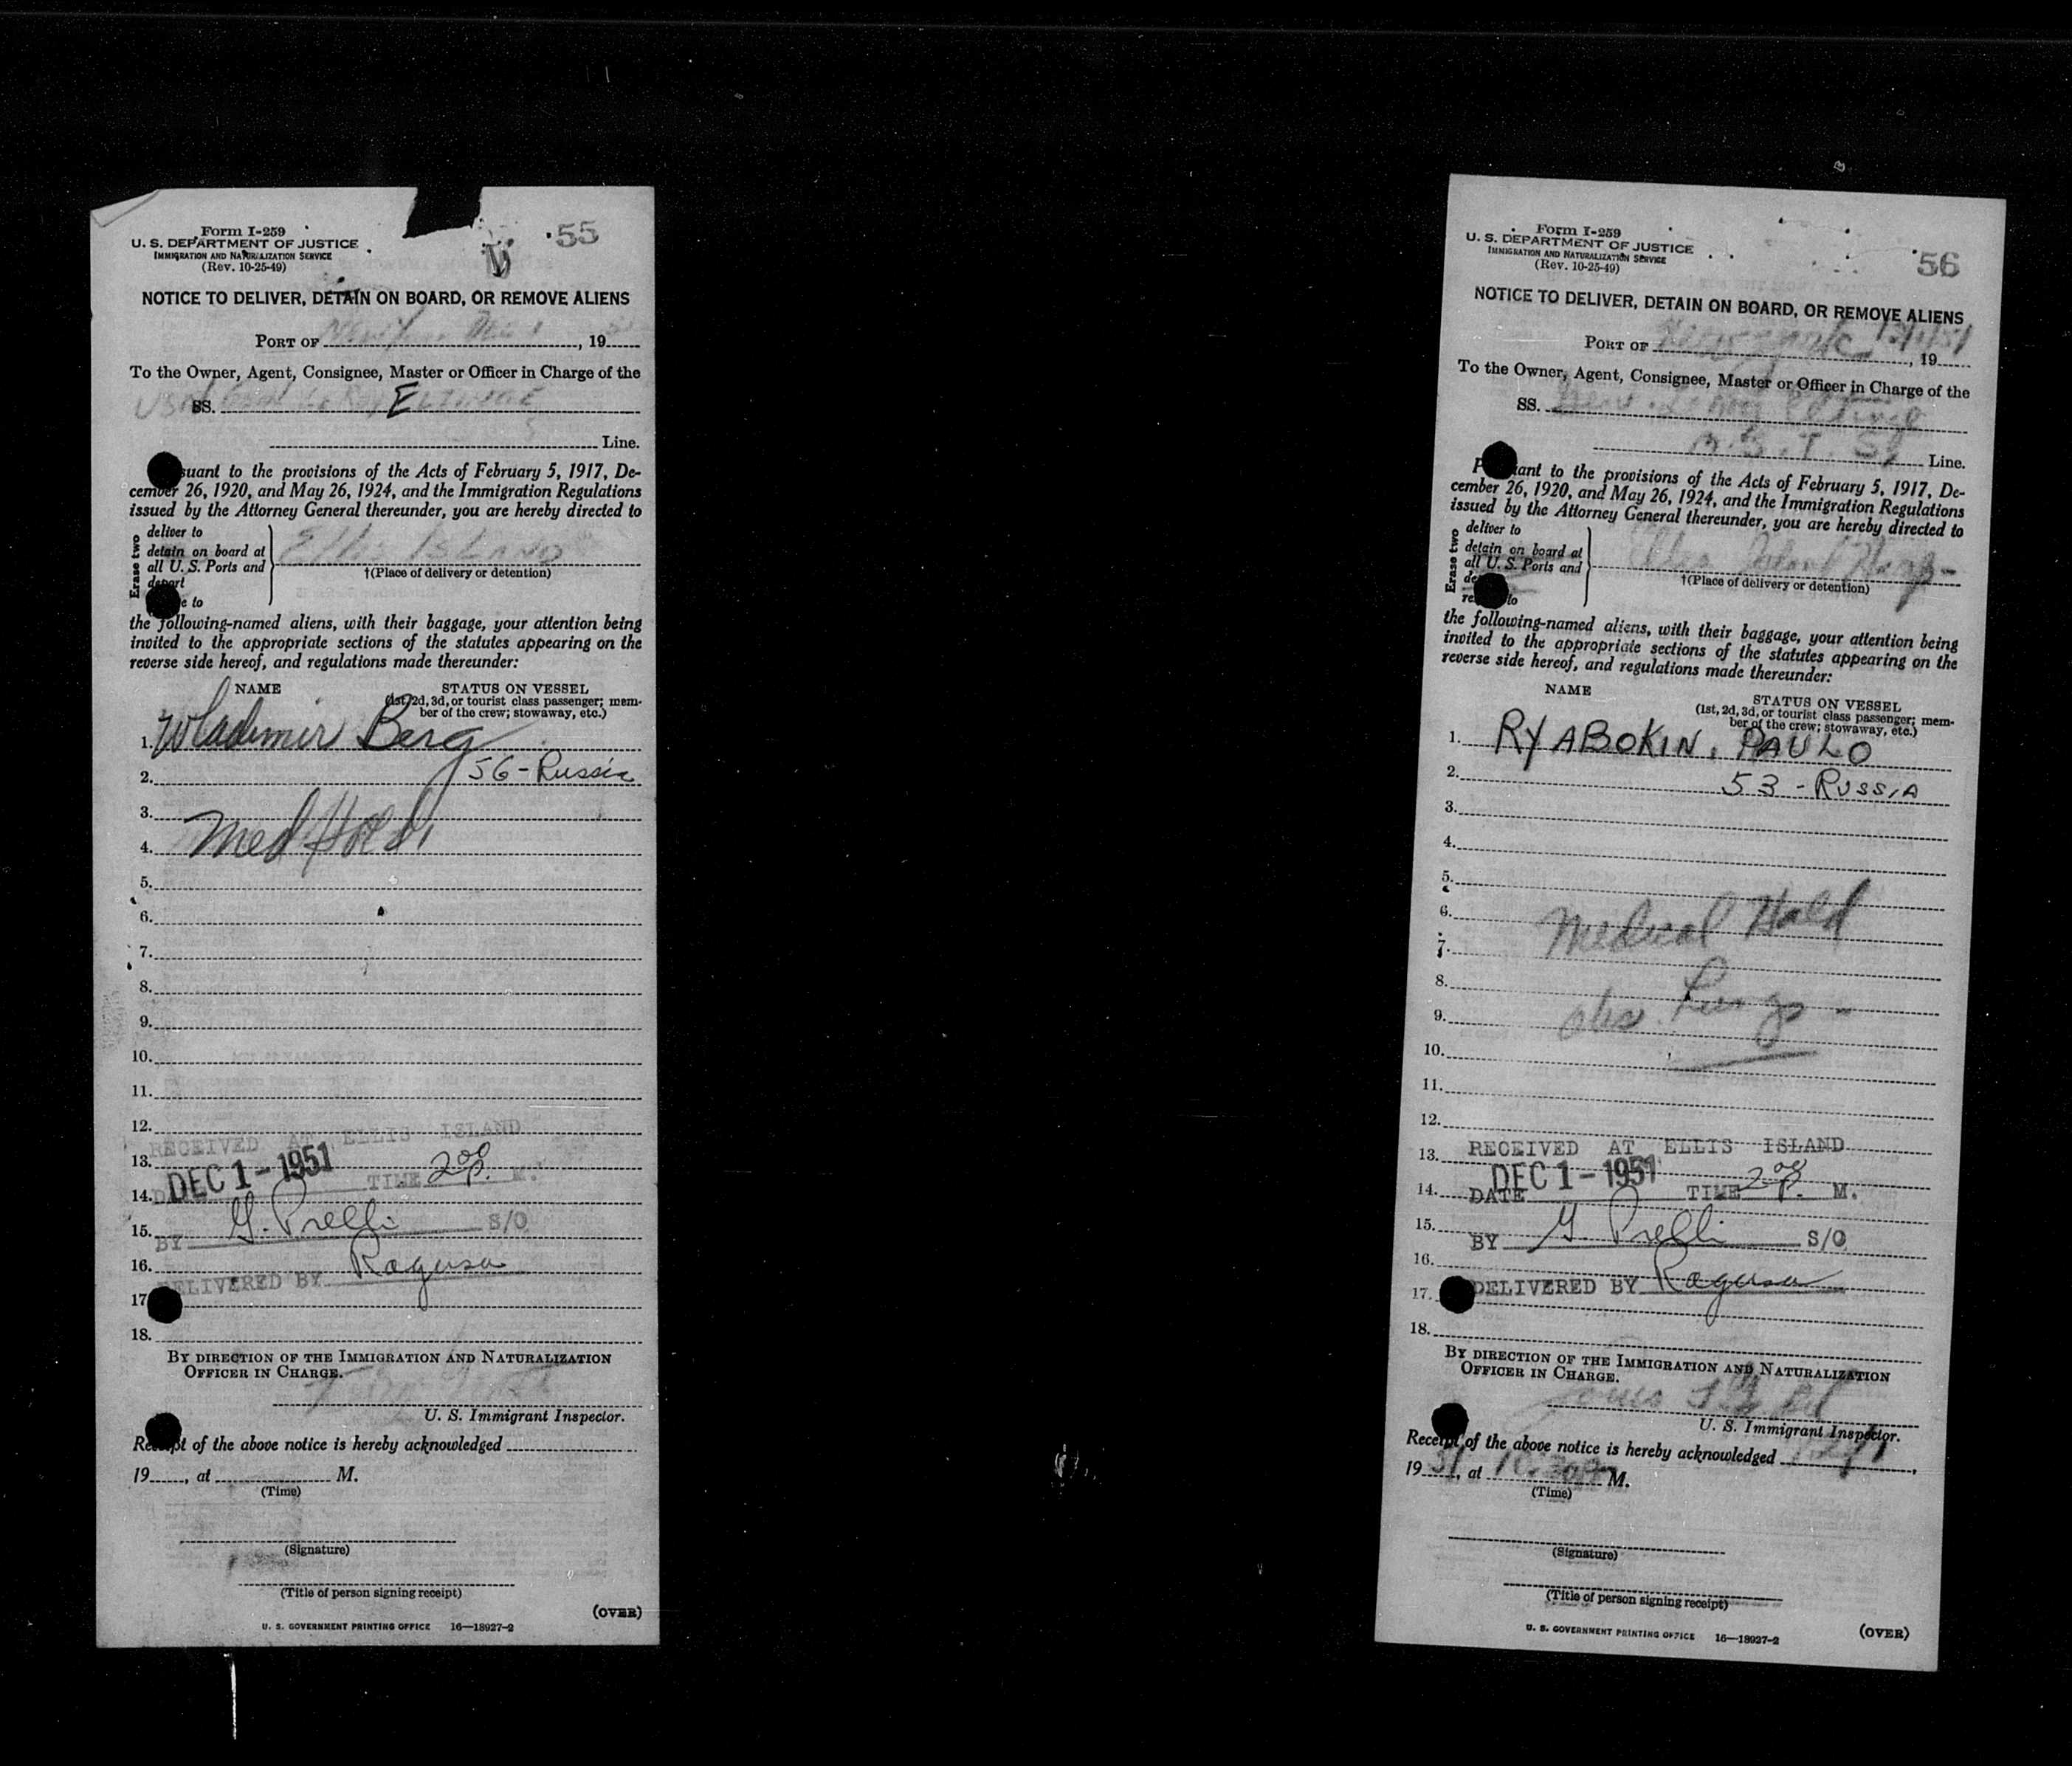 Form I-259
U. S. DEPARTMENT OF JUSTICE
IMMIGRATION AND NATURALIZATION SERVICE
(Rev. 10-25-49)
55
NOTICE TO DELIVER, DETAIN ON BOARD, OR REMOVE ALIENS
PORT OF New Y Dec 1, 19
To the Owner, Agent, Consignee, Master or Officer in Charge of the
SS. ELTINGE
Line.
suant to the provisions of the Acts of February 5, 1917, De-
cember 26, 1920, and May 26, 1924, and the Immigration Regulations
issued by the Attorney General thereunder, you are hereby directed to
Erase two
deliver to
detain on board at
all U. S. Ports and
depart
e to
ELLIS ISLAND
†(Place of delivery or detention)
the following-named aliens, with their baggage, your attention being
invited to the appropriate sections of the statutes appearing on the
reverse side hereof, and regulations made thereunder:
NAME
STATUS ON VESSEL
(1st, 2d, 3d, or tourist class passenger; mem-
ber of the crew; stowaway, etc.)
1. Wladimir Berg
2. 56 - Russia
3.
4. Med Hold
5.
6.
7.
8.
9.
10.
11.
12.
RECEIVED AT ELLIS ISLAND
13.
DEC 1 - 1951 TIME 2 00 P. M.
14.
15.
BY G. Prelli S/O
16.
DELIVERED BY Ragusa
17
18.
BY DIRECTION OF THE IMMIGRATION AND NATURALIZATION
OFFICER IN CHARGE.
U. S. Immigrant Inspector.
Receipt of the above notice is hereby acknowledged
19, at M.
(Time)
(Signature)
(Title of person signing receipt)
(OVER)
U. S. GOVERNMENT PRINTING OFFICE 16—18927-2
Form I-259
U. S. DEPARTMENT OF JUSTICE
IMMIGRATION AND NATURALIZATION SERVICE
(Rev. 10-25-49)
56
NOTICE TO DELIVER, DETAIN ON BOARD, OR REMOVE ALIENS
PORT OF New York 12/1/51, 19
To the Owner, Agent, Consignee, Master or Officer in Charge of the
SS. Gen. Leroy Eltinge
M. S. T. S. Line.
P ant to the provisions of the Acts of February 5, 1917, De-
cember 26, 1920, and May 26, 1924, and the Immigration Regulations
issued by the Attorney General thereunder, you are hereby directed to
Erase two
deliver to
detain on board at
all U. S. Ports and
de
re to
Island
†(Place of delivery or detention)
the following-named aliens, with their baggage, your attention being
invited to the appropriate sections of the statutes appearing on the
reverse side hereof, and regulations made thereunder:
NAME
STATUS ON VESSEL
(1st, 2d, 3d, or tourist class passenger; mem-
ber of the crew; stowaway, etc.)
1. RYABOKIN, PAULO
2. 53 - RUSSIA
3.
4.
5.
6. Medical Hold
7.
8.
obs. Lungs -
9.
10.
11.
12.
RECEIVED AT ELLIS ISLAND
13.
DEC 1 - 1951
14. DATE TIME 2 00 P. M.
15.
BY G. Prelli S/O
16.
17. DELIVERED BY Ragusa
18.
BY DIRECTION OF THE IMMIGRATION AND NATURALIZATION
OFFICER IN CHARGE.
U. S. Immigrant Inspector.
Receipt of the above notice is hereby acknowledged
19 51, at M.
(Time)
(Signature)
(Title of person signing receipt)
U. S. GOVERNMENT PRINTING OFFICE 16—18927-2
(OVER)